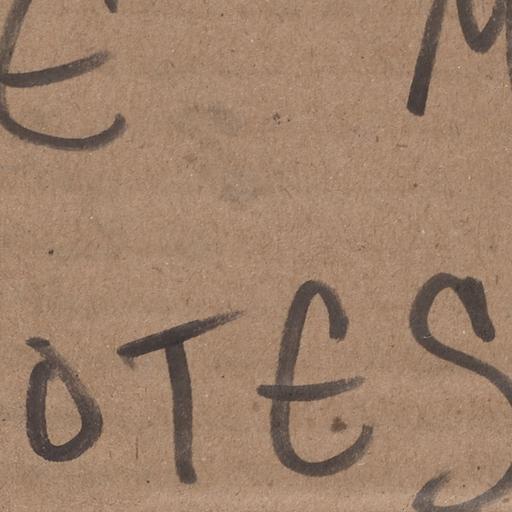 E M
OTES